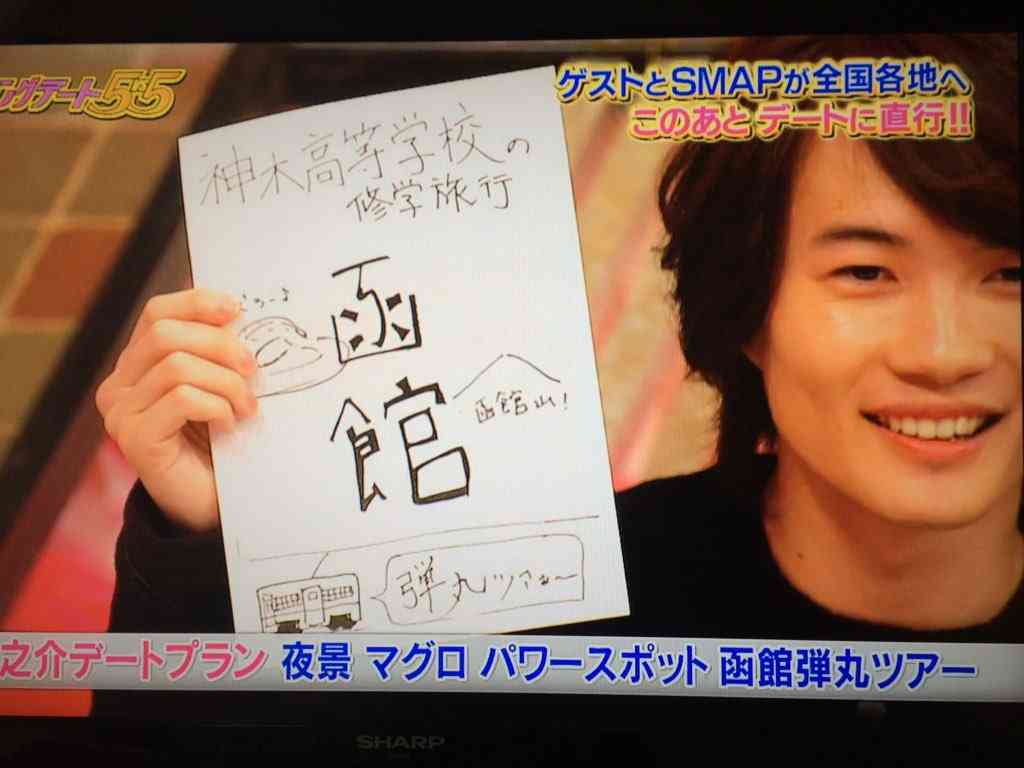 ングデート5vs5
ゲストとSMAPが全国各地へ
このあと デートに直行!!
神木高等学校の
修学旅行
函
館
函館山!
弾丸ツアー
之介デートプラン 夜景 マグロ パワースポット 函館弾丸ツアー
SHARP